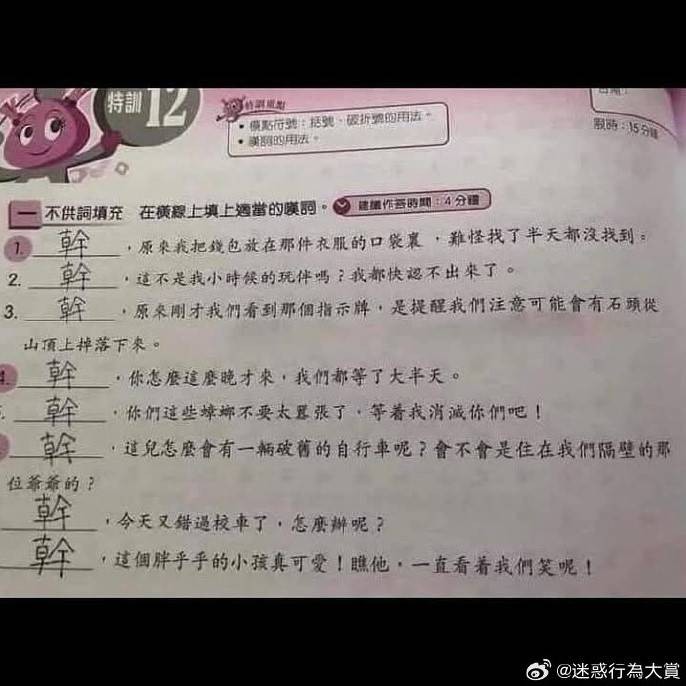 特訓 12
特訓重點
• 標點符號：括號、破折號的用法。
• 嘆詞的用法。
限時：15分鐘
一 不供詞填充 在橫線上填上適當的嘆詞。 建議作答時間：4分鐘
1. 幹，原來我把錢包放在那件衣服的口袋裏，難怪找了半天都沒找到。
2. 幹，這不是我小時候的玩伴嗎？我都快認不出來了。
3. 幹，原來剛才我們看到那個指示牌，是提醒我們注意可能會有石頭從
山頂上掉落下來。
4. 幹，你怎麼這麼晚才來，我們都等了大半天。
幹，你們這些蟑螂不要太囂張了，等着我消滅你們吧！
幹，這兒怎麼會有一輛破舊的自行車呢？會不會是住在我們隔壁的那
位爺爺的？
幹，今天又錯過校車了，怎麼辦呢？
幹，這個胖乎乎的小孩真可愛！瞧他，一直看着我們笑呢！
@迷惑行為大賞